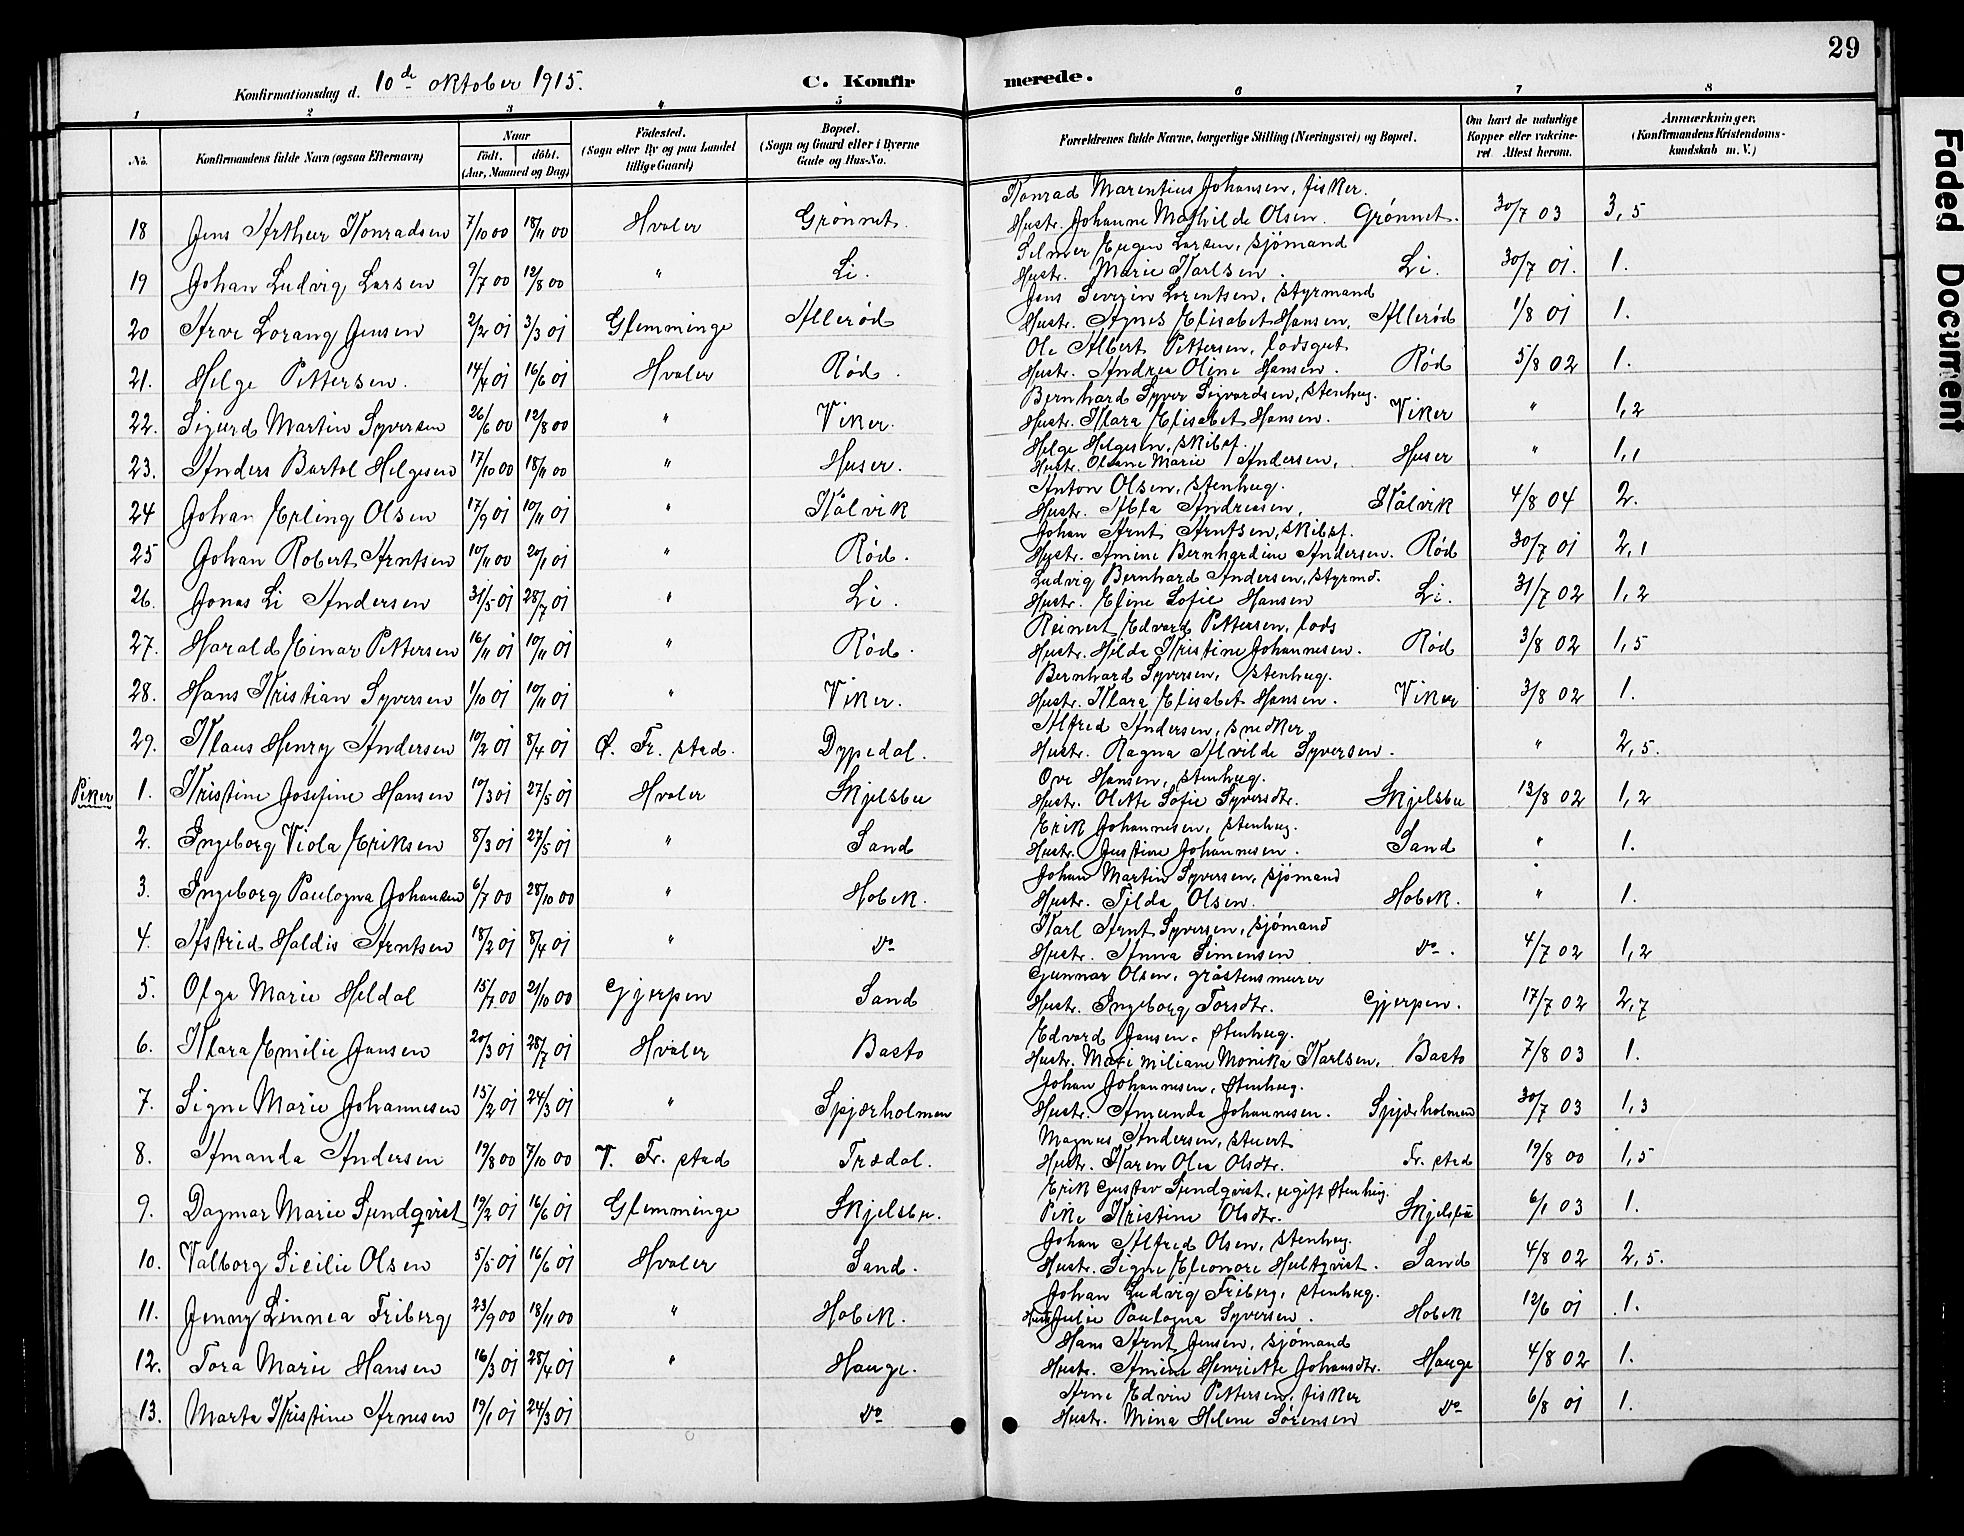 29
Konfirmationsdag d. 10de oktober 1915.
C. Konfirmerede.
1 2 3 4 5 6 7 8
No.
Konfirmandens fulde Navn (ogsaa Efternavn)
Naar
födt. döbt.
(Aar, Maaned og Dag)
Födested.
(Sogn eller By og paa Landet
tillige Gaard)
Bopæl.
(Sogn og Gaard eller i Byerne
Gade og Hus-No.
Forældrenes fulde Navne, borgerlige Stilling (Næringsvei) og Bopæl.
Om havt de naturlige
Kopper eller vakcine-
ret. Attest herom.
Anmærkninger.
(Konfirmandens Kristendoms-
kundskab m. V.)
Konrad Marentius Johansen, fisker.
18 Jens Arthur Konradsen 7/10 00 18/11 00 Hvaler Grønnet. Hustr. Johanne Mathilde Olsen. Grønnet. 30/7 03 3,5
Selmer Eugen Larsen, sjömand
19 Johan Ludvig Larsen 9/7 00 12/8 00 " Li. Hustr. Marie Karlsen. Li. 30/7 01. 1.
Jens Severin Lorentsen, styrmand
20 Arve Lorang Jensen 2/2 01 3/3 01 Glemminge Allerød Hustr. Agnes Elisabet Hansen, Allerød 1/8 01 1.
Ole Albert Pettersen, lodsgut
21. Helge Pettersen. 14/4 01 16/6 01 Hvaler Rød. Hustr. Andrea Oline Hansen. Rød 5/8 02 1.
Bernhard Syver Sigvardsen, Stenhug.
22. Sigurd Martin Syversen 26/6 00 12/8 00 " Viker. Hustr. Klara Elisabet Hansen. Viker " 1,2
Helge Helgesen, skibsf.
23. Anders Bartol Helgesen 17/10 00 18/11 00 " Huser. Hustr. Olsine Marie Andersen, Huser " 1,1
Anton Olsen, stenhug.
24 Johan Erling Olsen 17/9 01 10/11 01 " Kålvik Hustr. Alfa Andreasen, Kålvik 4/8 04 2.
Johan Arnt Arntsen, skibsf.
25 Johan Robert Arntsen 10/11 00 20/1 01 " Rød. Hustr. Amine Bernhardine Andersen. Rød 30/7 01 2,1
Ludvig Bernhard Andersen, Styrmd.
26. Jonas Li Andersen 31/5 01 28/7 01 " Li. Hustr. Eline Sofie Hansen Li. 31/7 02 1,2
Reinert Edvard Pettersen, lods
27. Harald Einar Pettersen 16/11 01 10/11 01 " Rød. Hustr. Hilda Kristine Johannesen. Rød 3/8 02 1,5
Bernhard Syversen, Stenhug.
28. Hans Kristian Syversen 1/10 01 10/11 01 " Viker. Hustr. Klara Elisabet Hansen. Viker 3/8 02 1.
Alfred Andersen, snedker
29. Klaus Henry Andersen 10/2 01 8/4 01 Ø. Fr. stad. Dypedal. Hustr. Ragna Alvilde Syversen. " 2,5.
Ove Hansen, stenhug.
Piker 1. Kristine Josefine Hansen 10/3 01 27/5 01 Hvaler Skjelsbu Hustr. Olette Sofie Syversdtr. Skjelsbu 13/8 02 1,2
Erik Johannesen, stenhug.
2. Ingeborg Viola Eriksen 8/3 01 27/5 01 " Sand Hustr. Justine Johannesen. Sand " 1.
Johan Martin Syversen, sjömand
3. Ingeborg Paulogna Johansen 6/7 00 28/10 00 " Hobek. Hustr. Tilda Olsen. Hobek. " 1.
Karl Arnt Syversen, sjömand
4. Astrid Haldis Arntsen 18/2 01 8/4 01 " do Hustr. Anna Simensen do. 4/7 02 1,2
Gunnar Olsen, gråstensmurer
5. Olga Marie Heldal 15/7 00 21/10 00 Gjerpen Sand Hustr. Ingeborg Torsdtr. Gjerpen. 17/7 02 2,7
Edvard Jansen, Stenhug.
6. Klara Emilie Jansen 20/3 01 28/7 01 Hvaler Basto Hustr. Marie miliane Monika Karlsen, Basto 7/8 03 1.
Johan Johannesen, Stenhug.
7. Signe Marie Johannesen 15/2 01 24/3 01 " Spjærholmen Hustr. Amunda Johannesen. Spjærholmen 30/7 03 1,3
Magnus Andersen, stuert
8. Amanda Andersen 19/8 00 7/10 00 V. Fr. stad Trædal. Hustr. Karen Olea Olsdtr. Fr. stad 19/8 00 1,5
Erik Gustav Sundqvist, ugift Stenhug.
9. Dagmar Marie Sundqvist 19/2 01 16/6 01 Glemminge Skjelsbu. Pike Kristine Olsdtr. Skjelsbu 6/1 03 1.
Johan Alfred Olsen, stenhug.
10. Valborg Sicilie Olsen 5/5 01 16/6 01 Hvaler Sand. Hustr. Signe Eleonore Hultqvist. Sand 4/8 02 2,5.
Johan Ludvig Friberg, stenhug.
11. Jenny Linnea Friberg 23/9 00 18/11 00 " Hobek. Hustr. Julie Paulogna Syversen. Hobek 12/6 01 1.
Hans Arnt Jensen, sjömand
12. Tora Marie Hansen 16/3 01 28/4 01 " Hauge. Hustr. Amine Henriette Johansdtr. Hauge 4/8 02 1.
Arne Edvin Pettersen, fisker
13. Marta Kristine Arnesen 19/1 01 24/3 01 do Hustr. Mina Helene Sørensen do 6/8 01 1.
Faded Document